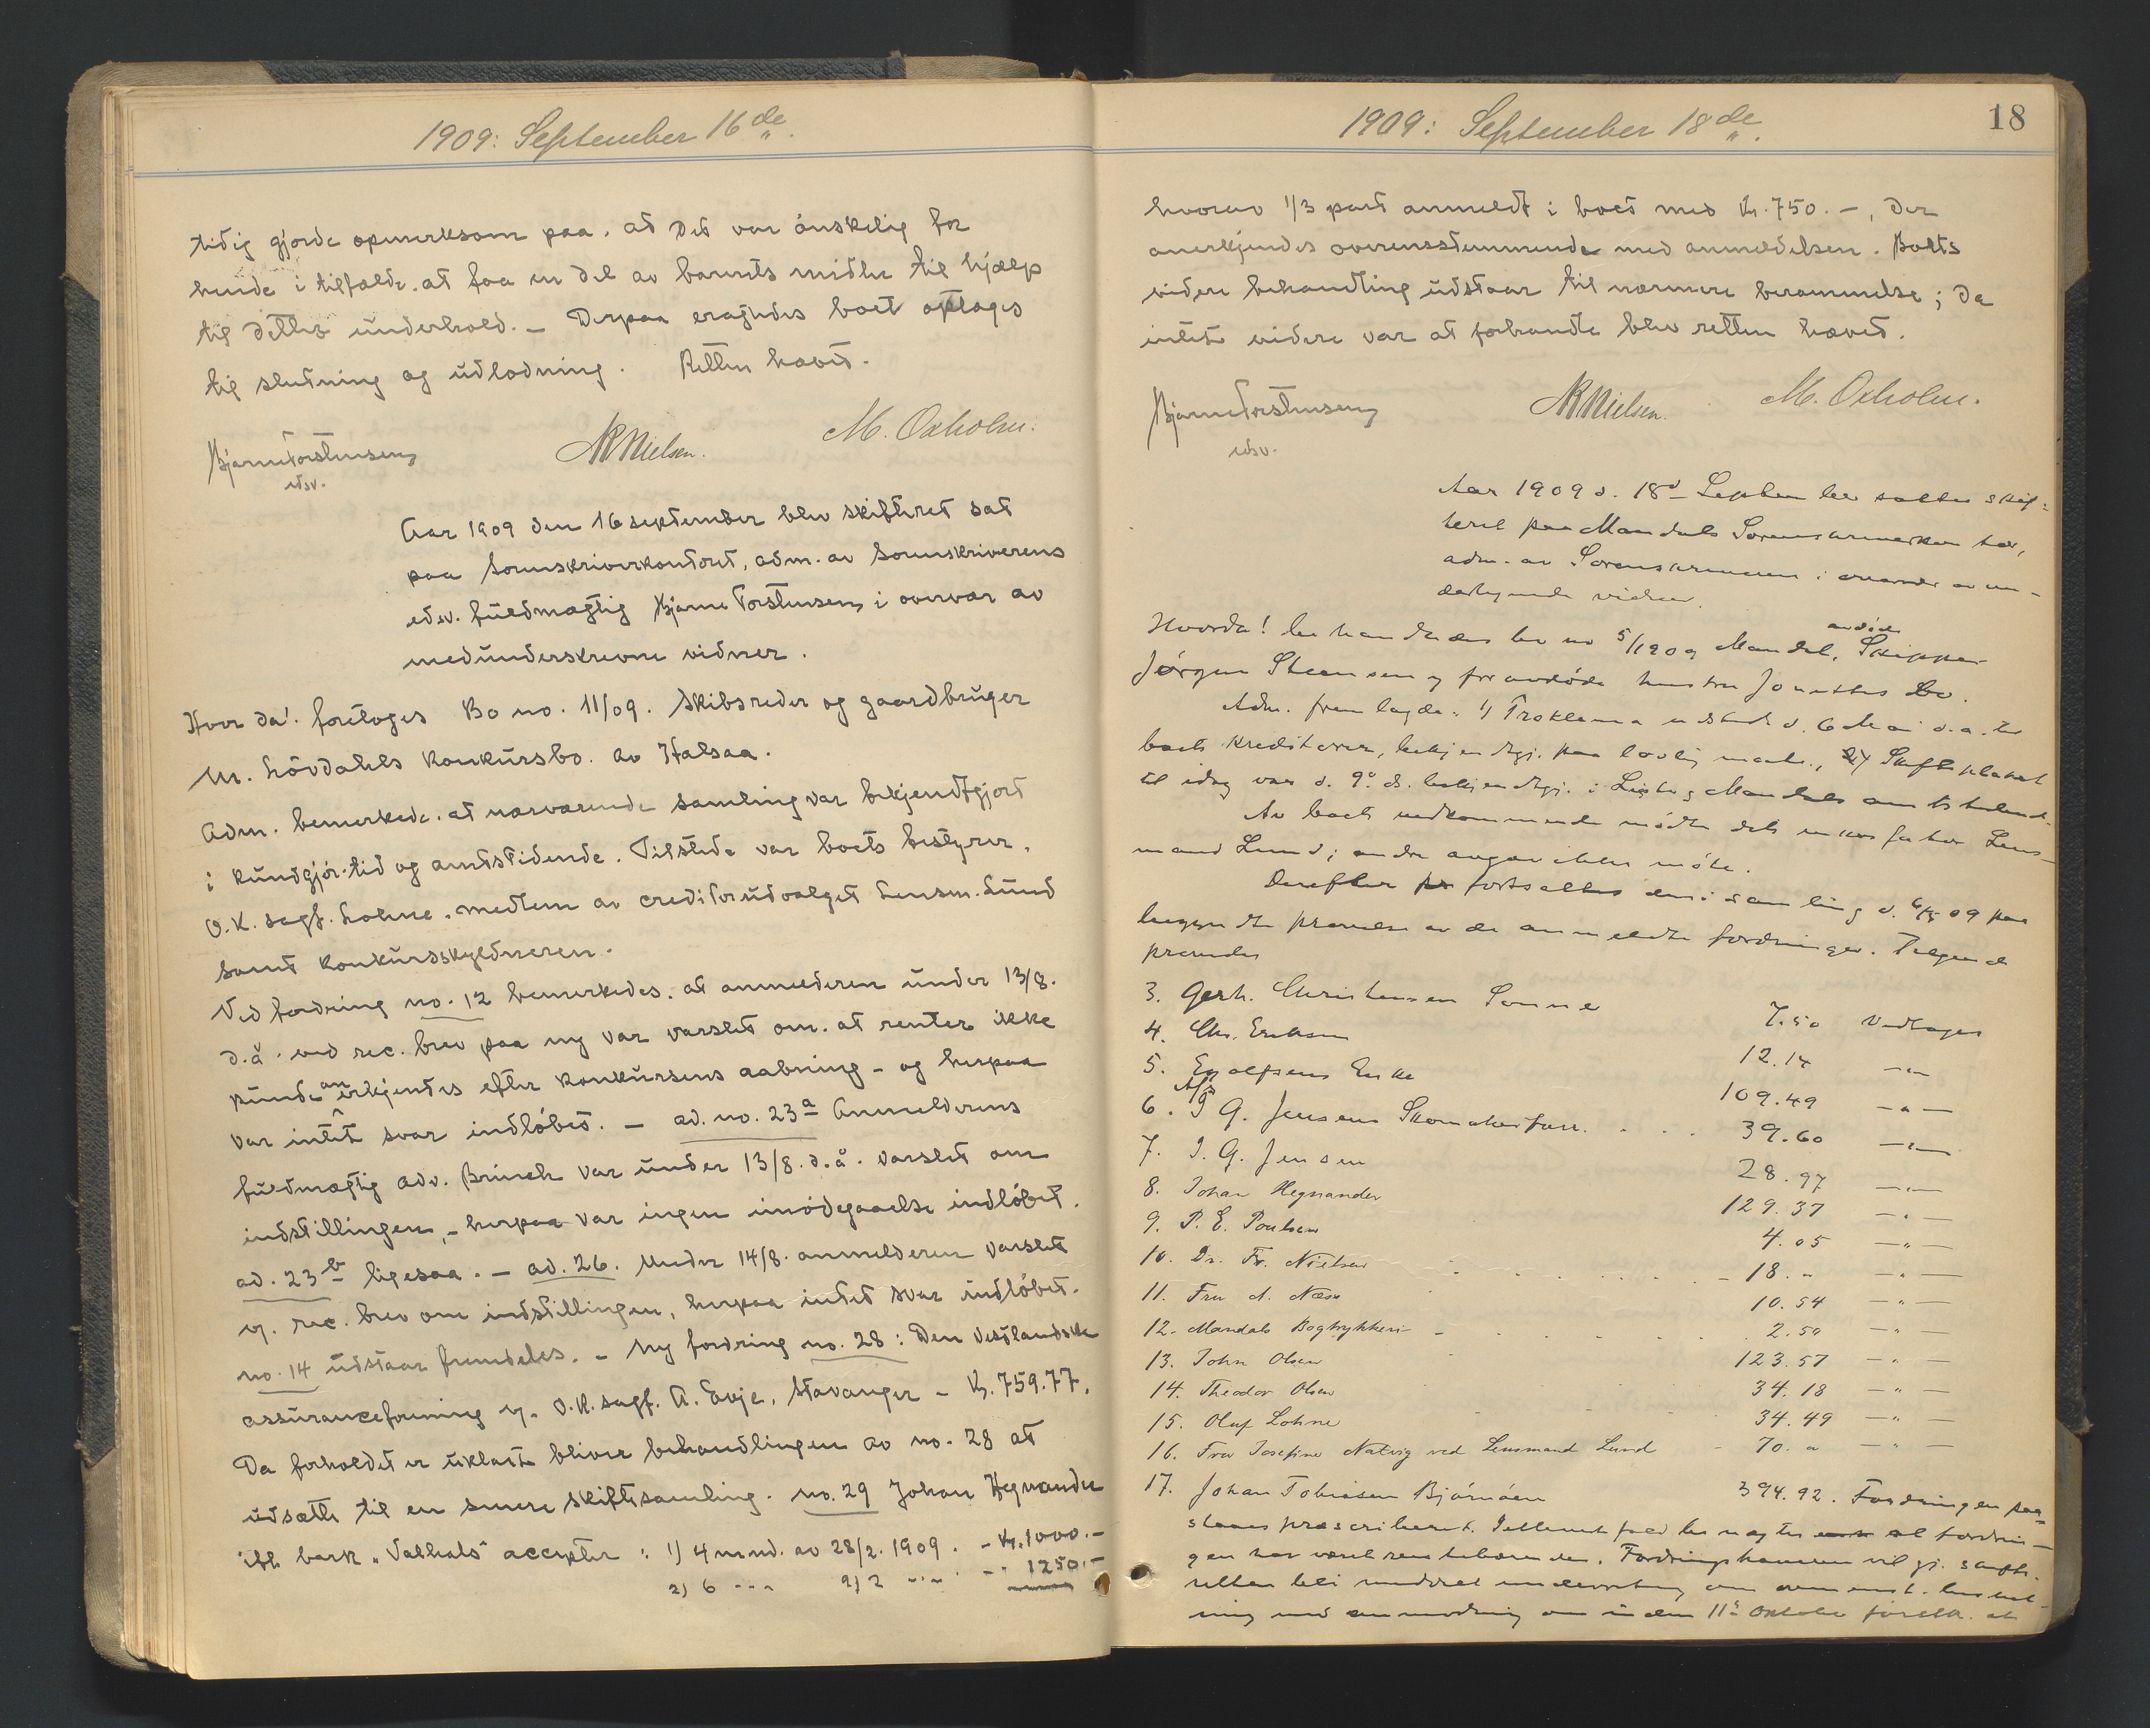 1909: September 16de
tidig gjorde opmerksom paa, at det var ønskelig for
hende i tilfælde at faa en del av barnets midler til hjælp
til dettes underhold. – Derpaa eragtedes boet optages
til slutning og udlodning. Retten hævet.
Bjarne Torstensen
edsv.
NNielsen.
M. Oxholm.
Aar 1909 den 16 september blev skifteret sat
paa Sorenskriverkontoret, adm. av Sorenskriverens
edsv. fuldmægtig Bjarne Torstensen i overvær av
medunderskrevne vidner.
Hvor da! foretoges Bo no. 11/09. Skibsreder og gaardbruger
M. Lövdahls Konkursbo av Halsaa.
Adm. bemerkede, at nærværende samling var bekjendtgjort
i kundgjør.tid og amtstidende. Tilstede var boets bestyrer,
O.R. sagf. Lohne, medlem av creditorudvalget Lensm. Lund
samt Konkursskyldneren.
Ved fordring no. 12 bemerkedes, at anmelderen under 13/8.
d.å. ved rec. brev paa ny var varslet om, at renter ikke
kunde anerkjendes efter Konkursens aabning – og herpaa
var intet svar indløbet. – ad. no. 23a Anmelderens
fuldmægtig adv. Brinch var under 13/8. d.å. varslet om
indstillingen, – herpaa var ingen imødegaaelse indløbet.
ad. 23b ligesaa. – ad. 26. Under 14/8. anmelderen varslet
v. rec. brev om indstillingen, herpaa intet svar indløbet.
no. 14 udstaar fremdeles. – Ny fordring no. 28: Den Vestlandske
assuranceforening v. O.R. sagf. A. Evje, Stavanger – Kr. 759.77.
Da forholdet er uklart bliver behandlingen av no. 28 at
udsætte til en senere skiftesamling. no. 29 Johan Hegnander
ifl. bark "Valhals" accepter: 1) 4 mnd. av 28/2. 1909. – Kr. 1000.–
2) 6 –"– 2/2 –"– 1250.–
1909: September 18de
18
hvorav 1/3 part anmeldt i boet med Kr. 750.–, der
anerkjendes overensstemmende med anmeldelsen. Boets
videre behandling udstaar til nærmere berammelse; da
intet videre var at forhandle blev retten hævet.
Bjarne Torstensen
edsv.
NNielsen.
M. Oxholm.
Aar 1909 d. 18d Septbr blev sattes skif-
teret paa Mandals Sorenskriverkontor,
adm. av Sorenskriveren i overvær av un-
dertegnede vidner.
Hvorda! behandledes bo no 5/1909 Mandal, avdøde Skipper
Jörgen Steensen og foravdøde hustru Jonettes Bo.
Adm. fremlagde: 1) Proklama udstedt d. 6 Mai d.a. til
boets kreditorer, bekjendtgj. paa lovlig maate, 2) Skifteplakat
til idag var d. 9d. ds. bekjendtgj. i Lister og Mandals amtstidende.
Av boets vedkommende mødte dets inkassator Lens-
mand Lund; andre angav ikke møte.
Derefter fortsattes den i samling d. 6/8 09 paa
begyndte prøvelse av de anmeldte fordringer. Følgende
prøvedes
3. Gerh. Christensen Sønne 7.50 Vedtages
4. Chr. Eriksen 12.14 –"–
5. Egelfsens Enke 109.49 –"–
6. A/S T. G. Jensens Skomakerforr. . . . 39.60 –"–
7. I. G. Jensen 28.97 –"–
8. Johan Hegnander 129.37 –"–
9. P. E. Poulsen 4.05 –"–
10. Dr. Fr. Nielsen . . . . . . . . 18.– –"–
11. Fru A. Næss 10.54 –"–
12. Mandals Bogtrykkeri – . . . . . . 2.50 –"–
13. John Olsen 123.57 –"–
14. Theodor Olsen 34.18 –"–
15. Oluf Lohne 34.49 –"–
16. Fru Josefine Natvig ved Lensmand Lund – 70.– –"–
17. Johan Tobiasen Bjørnøen 394.92. Fordringen paa-
staaes præscriberet. I ethvert fald benegtes at fordrin-
gen har været rentebærende. Fordringshaveren vil gj. skifte-
retten bli meddelt underretning om ovennevnte
med anmodning om inden 11d Oktober førstk. at